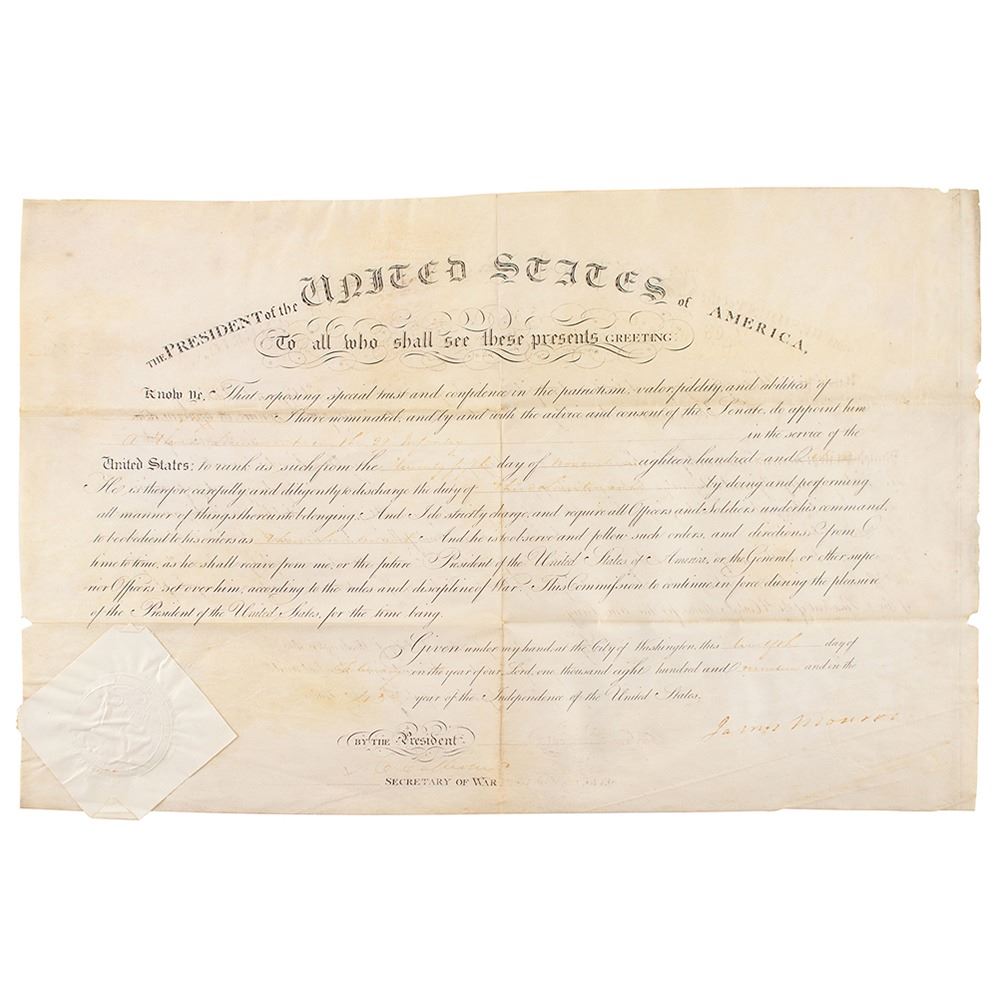 THE PRESIDENT of the UNITED STATES of AMERICA,
To all who shall see these presents GREETING:
Know ye, That reposing special trust and confidence in the patriotism, valor, fidelity, and abilities of
I have nominated, and by and with the advice and consent of the Senate, do appoint him
A Third Lieutenant in the Infantry in the service of the
United States: to rank as such from the day of eighteen hundred and
He is therefore carefully and diligently to discharge the duty of Third Lieutenant by doing and performing
all manner of things thereunto belonging. And I do strictly charge, and require all Officers and Soldiers under his command,
to be obedient to his orders as Third Lieutenant And he is to observe and follow such orders, and directions, from
time to time, as he shall receive from me, or the future President of the United States of America, or the General, or other supe-
rior Officers set over him, according to the rules and discipline of War. This Commission to continue in force during the pleasure
of the President of the United States, for the time being.
Given under my hand, at the City of Washington, this twelfth day of
in the year of our Lord, one thousand eight hundred and nineteen and in the
43d year of the Independence of the United States.
James Monroe
BY THE President.
SECRETARY OF WAR